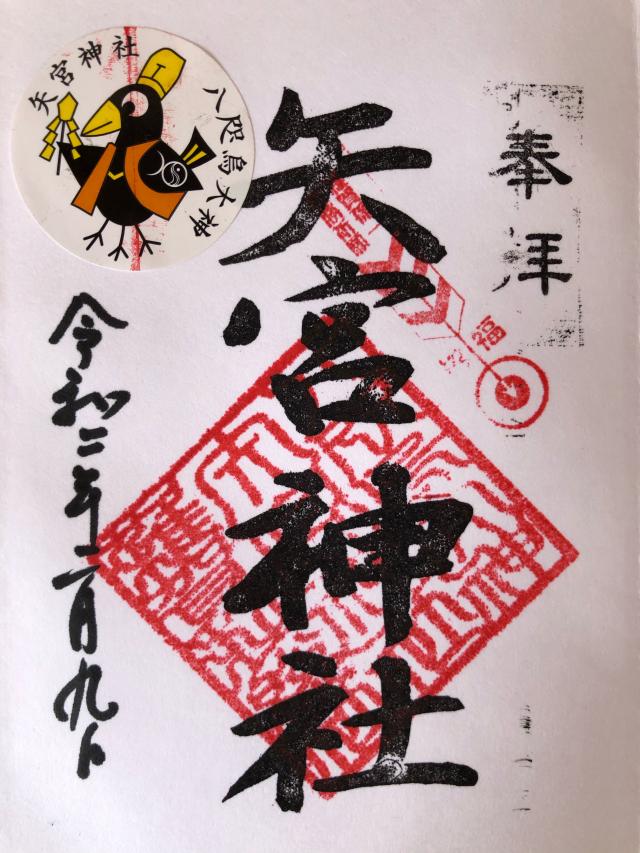 奉拝
矢宮神社
令和二年二月九日
矢宮神社
八咫烏大神
福